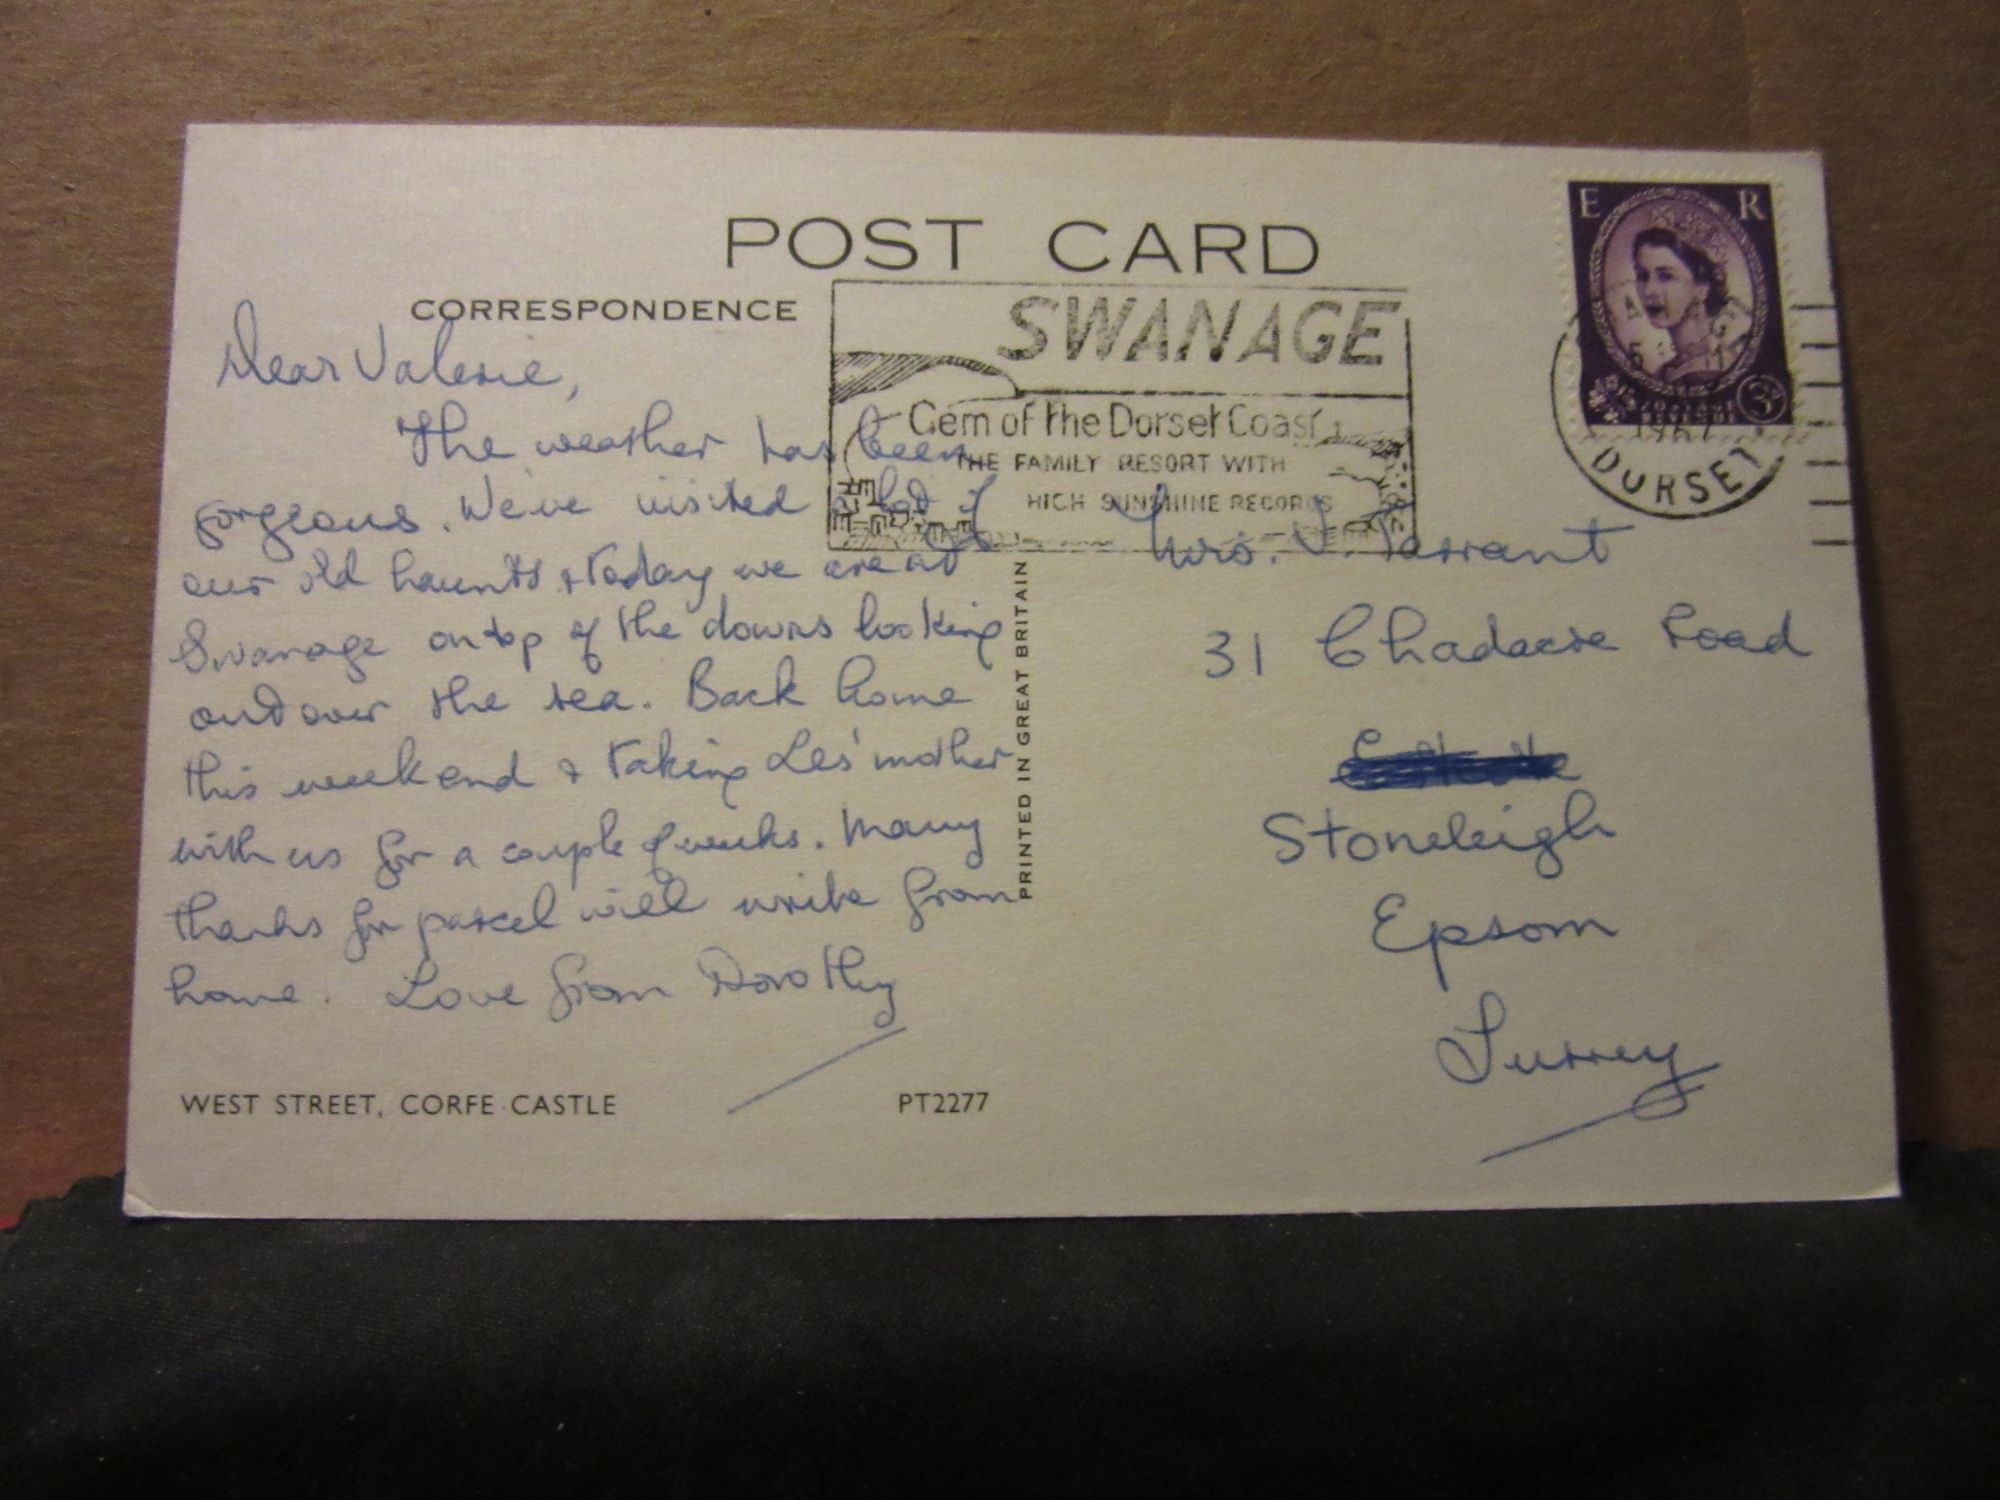 POST CARD
CORRESPONDENCE
Dear Valerie,
The weather has been
gorgeous. We've visited a lot of
our old haunts & today we are at
Swanage on top of the downs looking
out over the sea. Back home
this weekend & taking Les' mother
with us for a couple of weeks. Many
thanks for parcel will write from
home. Love from Dorothy
WEST STREET, CORFE CASTLE
PT2277
PRINTED IN GREAT BRITAIN
SWANAGE
Gem of the Dorset Coast
THE FAMILY RESORT WITH
HIGH SUNSHINE RECORDS
E R
3D
DORSET
Mrs. V. Tarrant
31 Chadacre Road
Stoneleigh
Epsom
Surrey